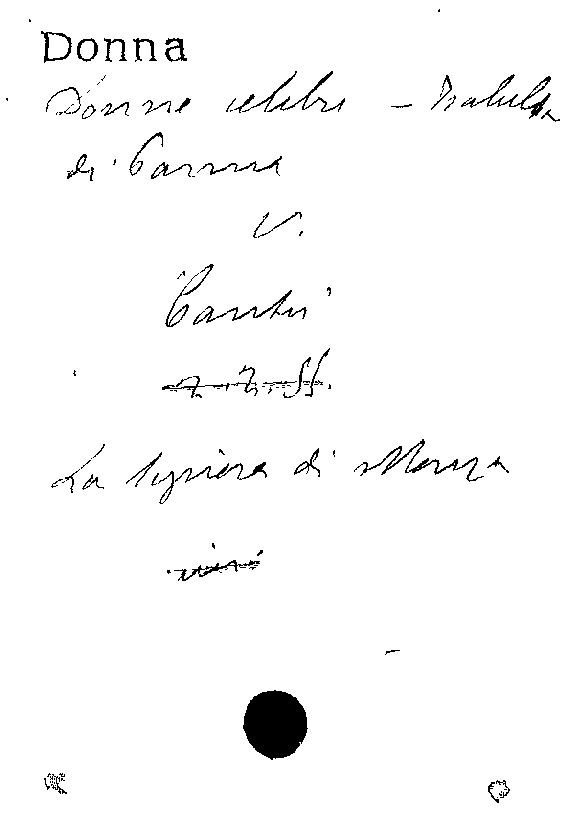 Donna
Donne celebri – Isabella
di Parma
V.
Cantù
La Signora di Monza